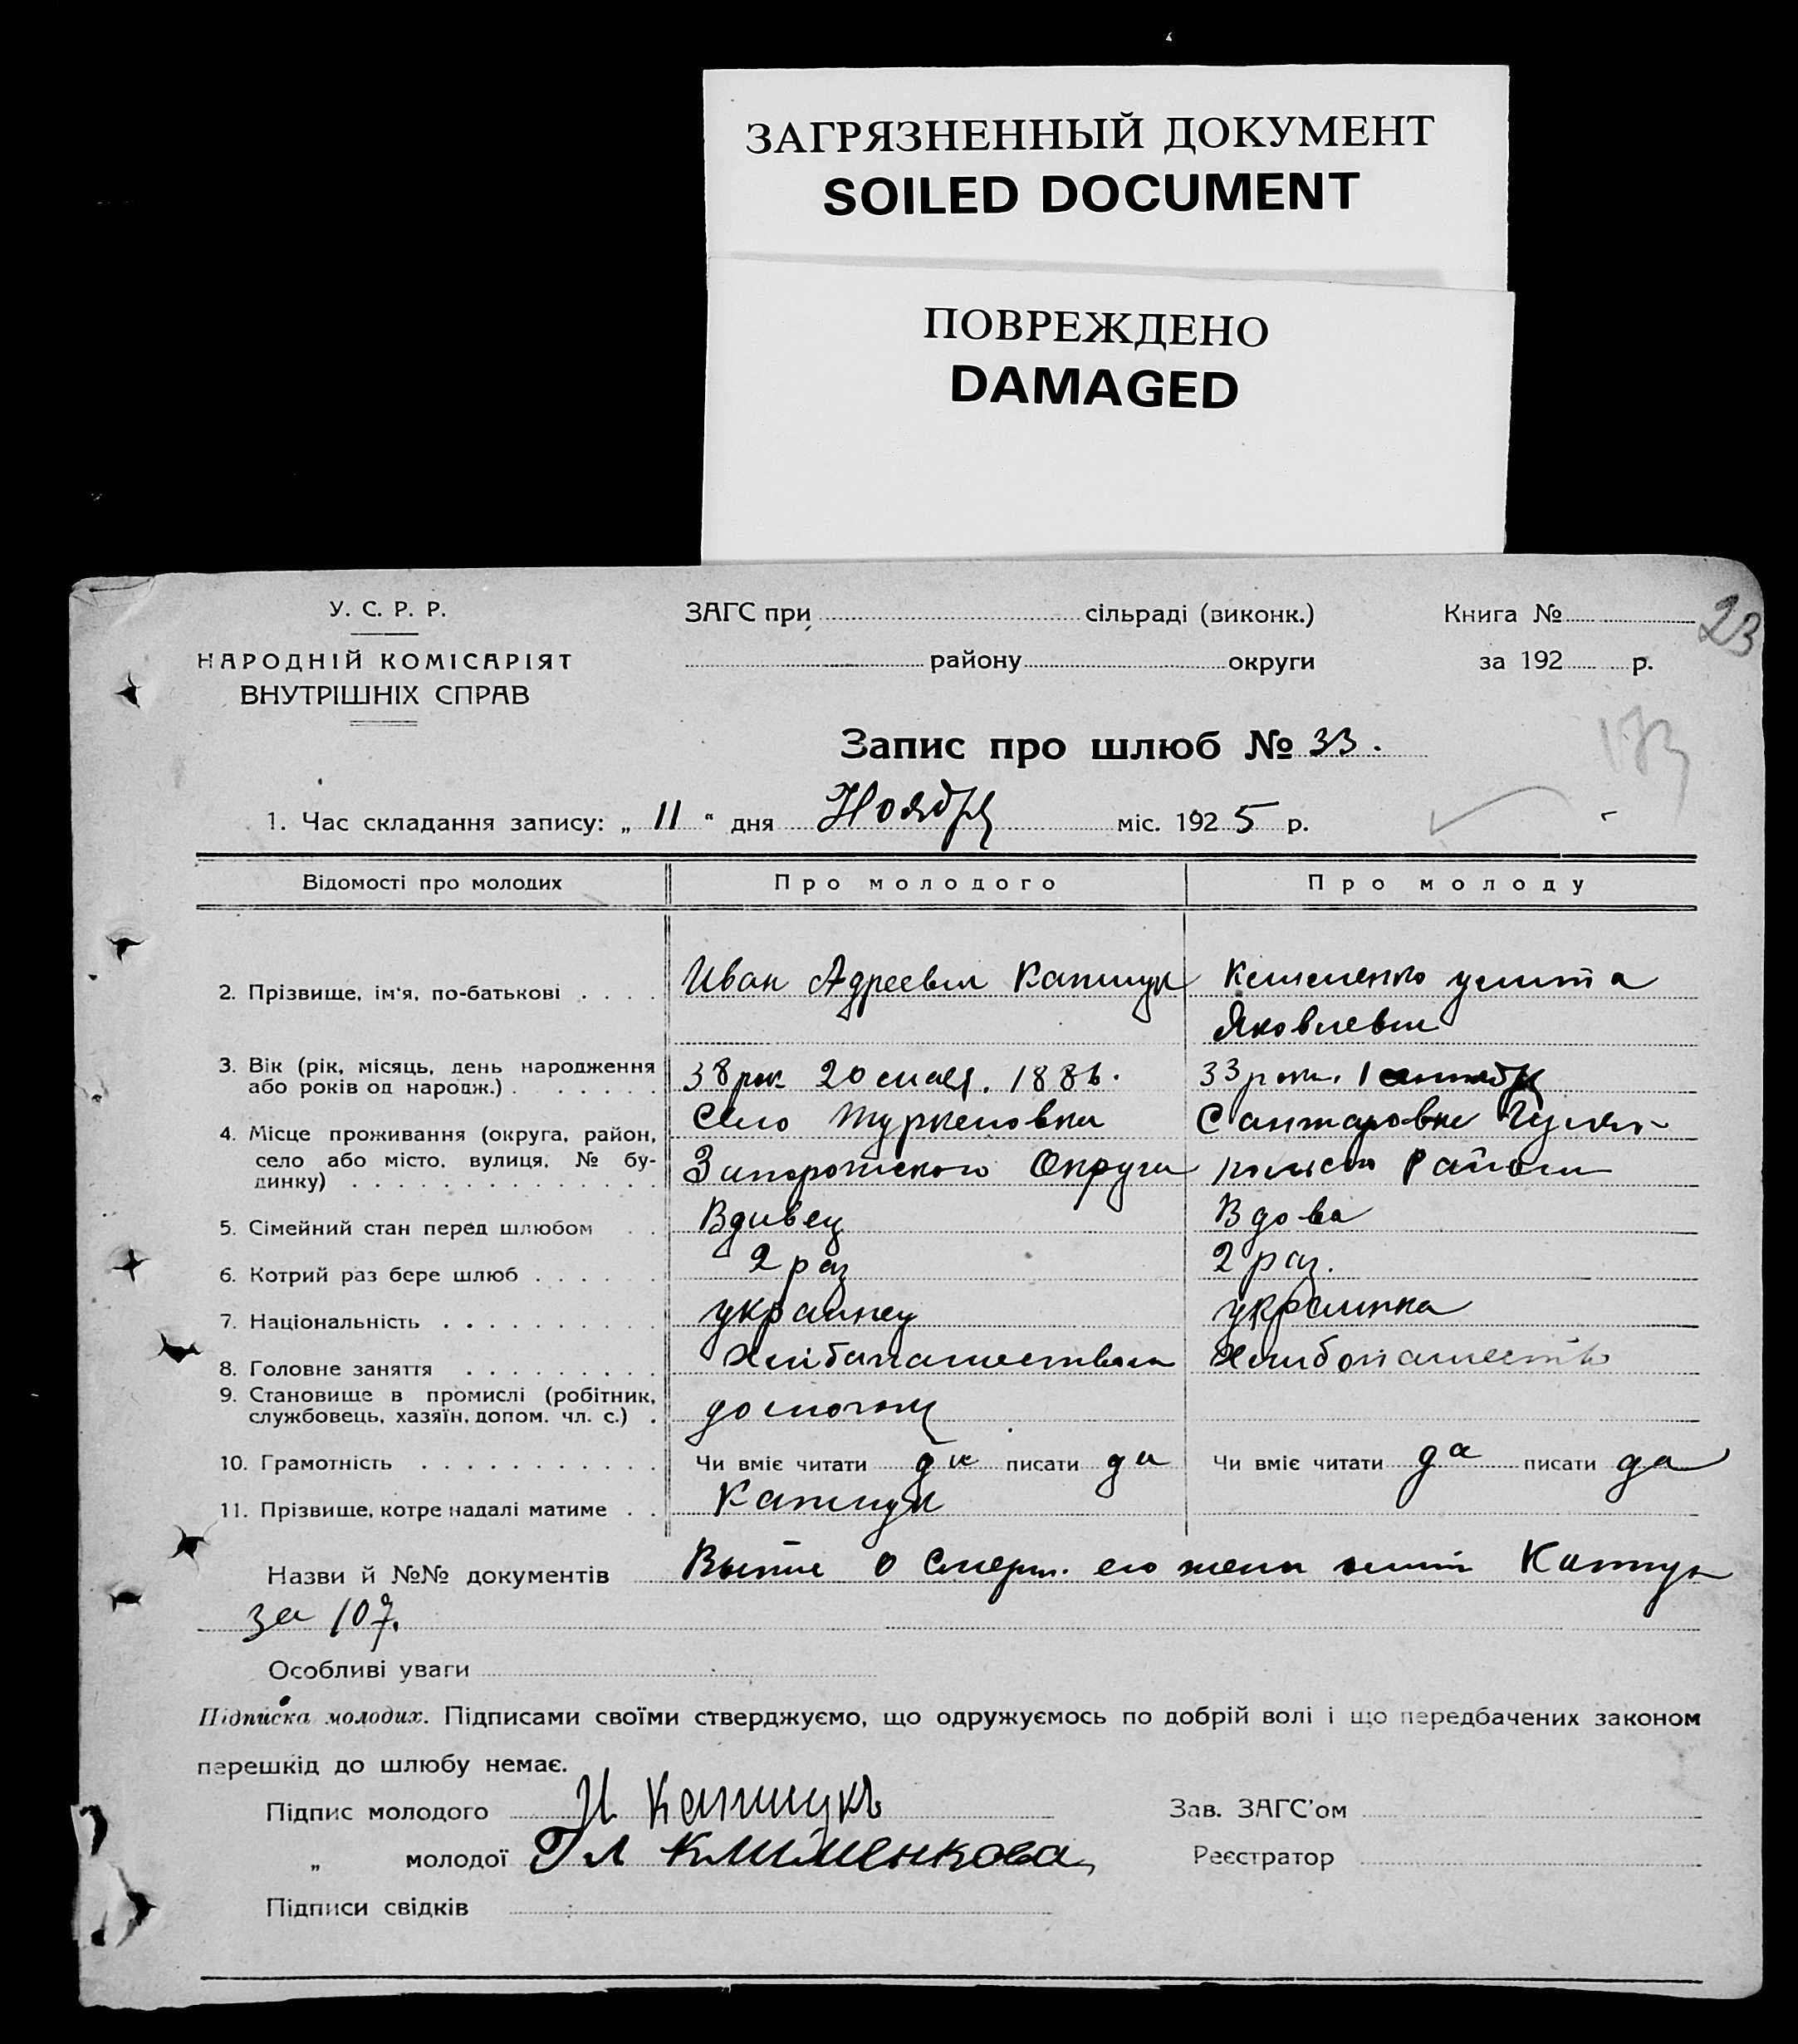 ЗАГРЯЗНЕННЫЙ ДОКУМЕНТ
SOILED DOCUMENT
ПОВРЕЖДЕНО
DAMAGED
У. С. Р. Р.
НАРОДНІЙ КОМІСАРІЯТ
ВНУТРІШНІХ СПРАВ
ЗАГС при сільраді (виконк.)
району округи
Книга №
за 192 р.
23
173
Запис про шлюб № 33.
1. Час складання запису: „ 11 “ дня Ноября міс. 1925 р.
Відомості про молодих Про молодого Про молоду
2. Прізвище, ім'я, по-батькові . . . . Иван Адреевич Капшук Клименко
Яковлевна
3. Вік (рік, місяць, день народження
або років од народж.) . . . . . . 38 рок 20 1886. 33 рок. 1
4. Місце проживання (округа, район,
село або місто, вулиця, № бу-
динку) . . . . . . . . . . . . . .
Село Туркеновка
Запорожского Округа
Санжаровка Гуляй-
польск Района
5. Сімейний стан перед шлюбом . . Вдивец Вдова
6. Котрий раз бере шлюб . . . . . . 2 раз 2 раз.
7. Національність . . . . . . . . . . украинец украинка
8. Головне заняття . . . . . . . . .
9. Становище в промислі (робітник,
службовець, хазяїн, допом. чл. с.) .
10. Грамотність . . . . . . . . . . . Чи вміє читати да писати да Чи вміє читати да писати да
11. Прізвище, котре надалі матиме . . Капшук
Назви й №№ документів о Смерти его жени Капшук
за 107.
Особливі уваги
Підписка молодих. Підписами своїми стверджуємо, що одружуємось по добрій волі і що передбачених законом
перешкід до шлюбу немає.
Підпис молодого И Капшукъ Зав. ЗАГС'ом
„ молодої Клименкова Реєстратор
Підписи свідків